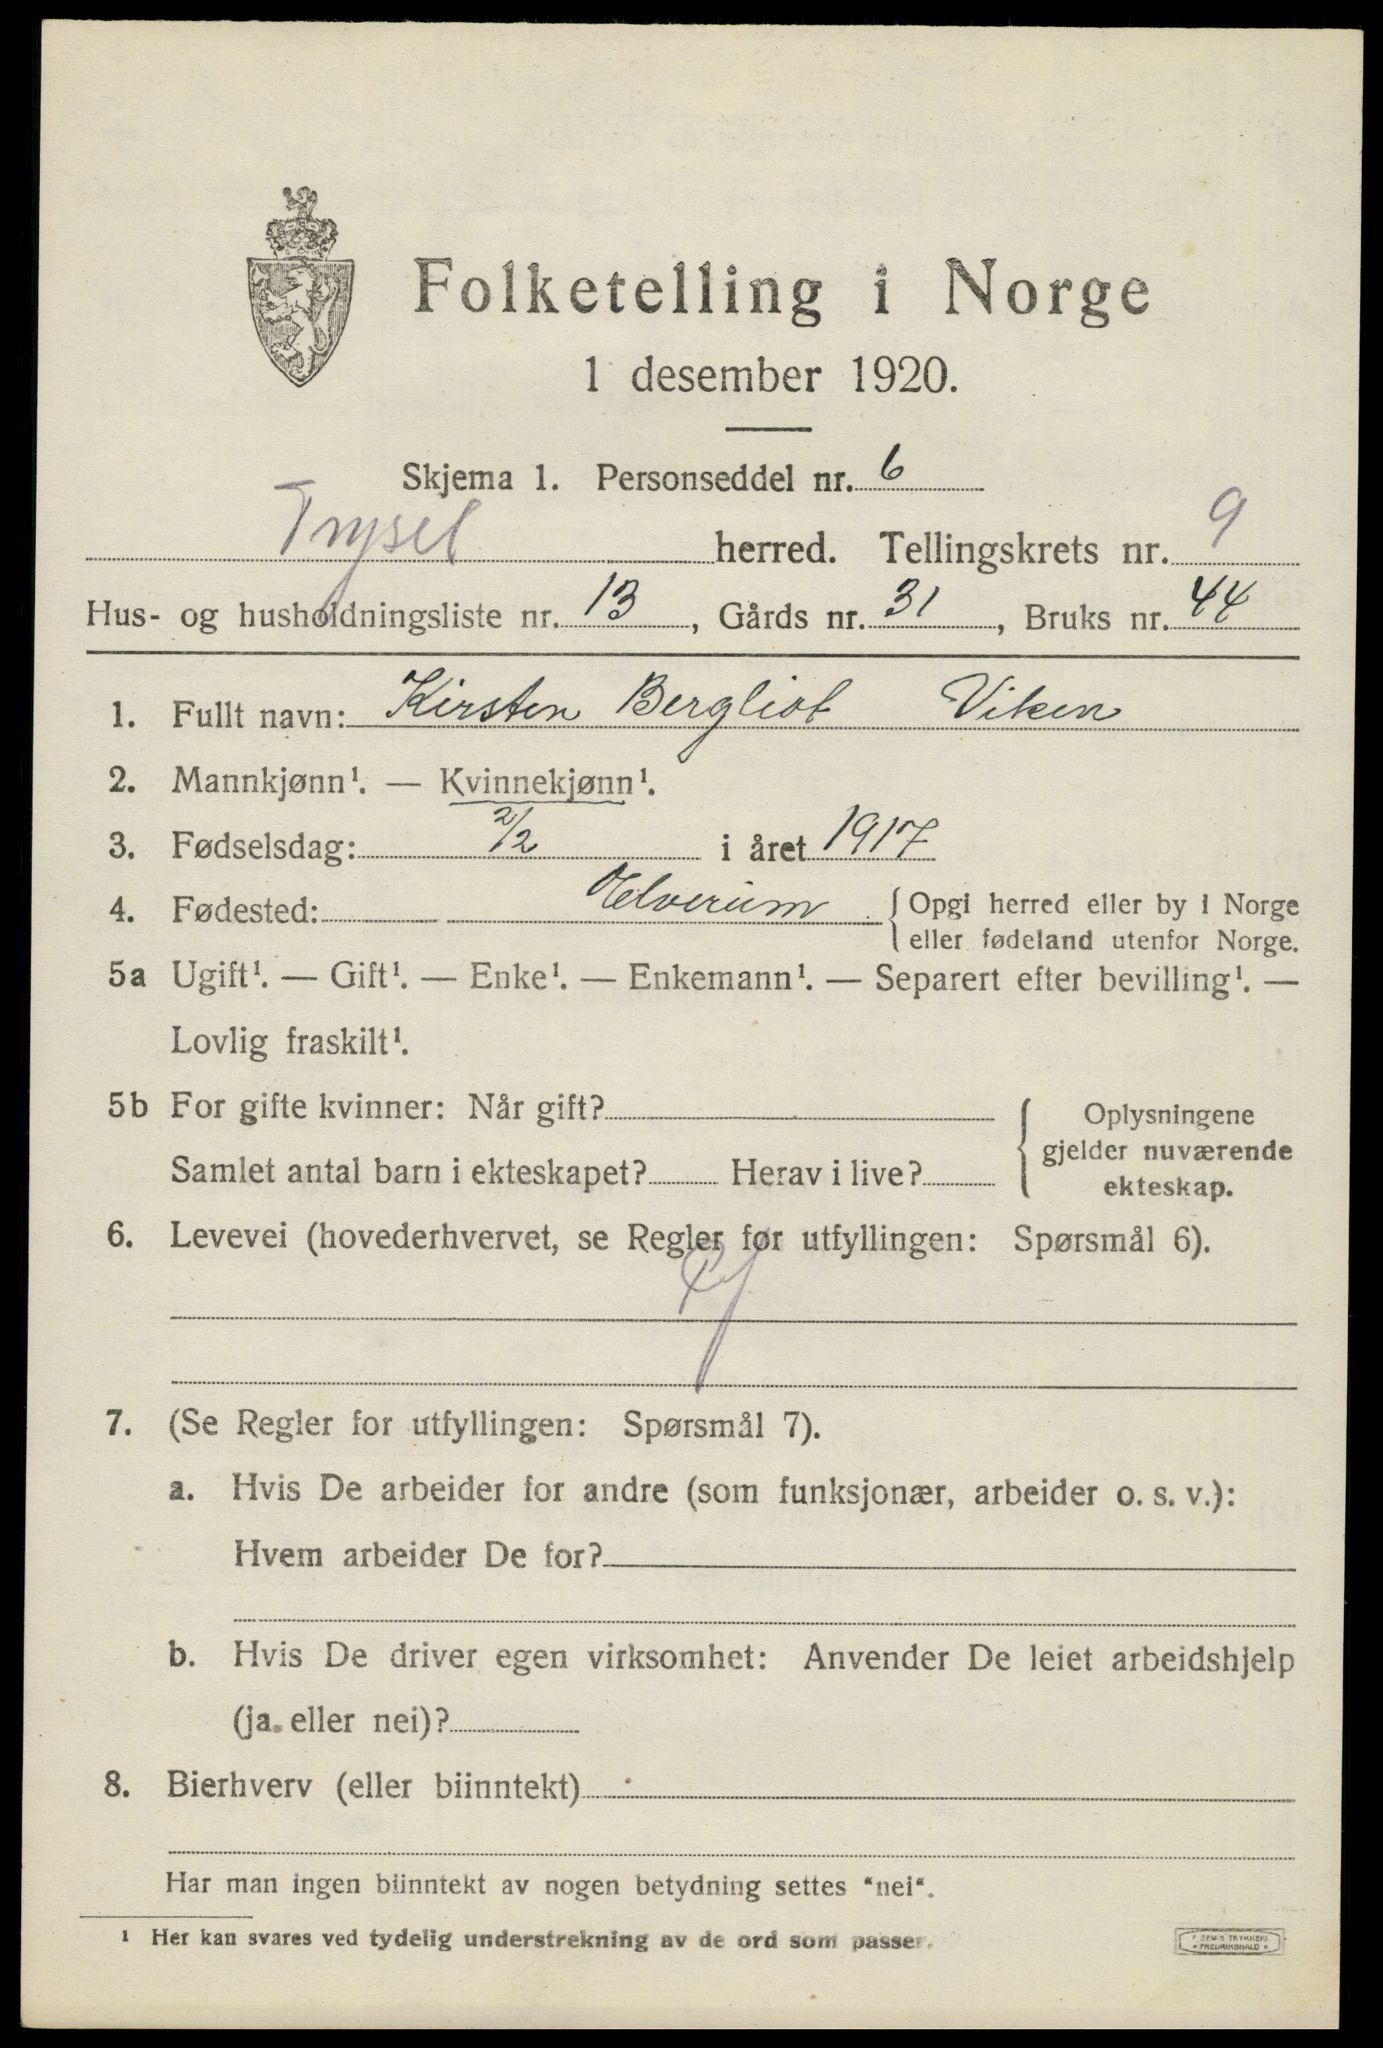 Folketelling i Norge
1 desember 1920.
Skjema 1. Personseddel nr. 6
Trysel herred. Tellingskrets nr. 9
Hus- og husholdningsliste nr. 13, Gårds nr. 31, Bruks nr. 44
1. Fullt navn: Kirsten Bergliot Viken
2. Mannkjønn¹. — Kvinnekjønn¹.
3. Fødselsdag: 2/2 i året 1917
4. Fødested: Elverum { Opgi herred eller by i Norge
eller fødeland utenfor Norge.
5a Ugift¹. — Gift¹. — Enke¹. — Enkemann¹. — Separert efter bevilling¹. —
Lovlig fraskilt¹.
5b For gifte kvinner: Når gift?
Samlet antal barn i ekteskapet? Herav i live?
{ Oplysningene
gjelder nuværende
ekteskap.
6. Levevei (hovederhvervet, se Regler før utfyllingen: Spørsmål 6).
7. (Se Regler for utfyllingen: Spørsmål 7).
a. Hvis De arbeider for andre (som funksjonær, arbeider o. s. v.):
Hvem arbeider De for?
b. Hvis De driver egen virksomhet: Anvender De leiet arbeidshjelp
(ja. eller nei)?
8. Bierhverv (eller biinntekt)
Har man ingen biinntekt av nogen betydning settes "nei".
¹ Her kan svares ved tydelig understrekning av de ord som passer.